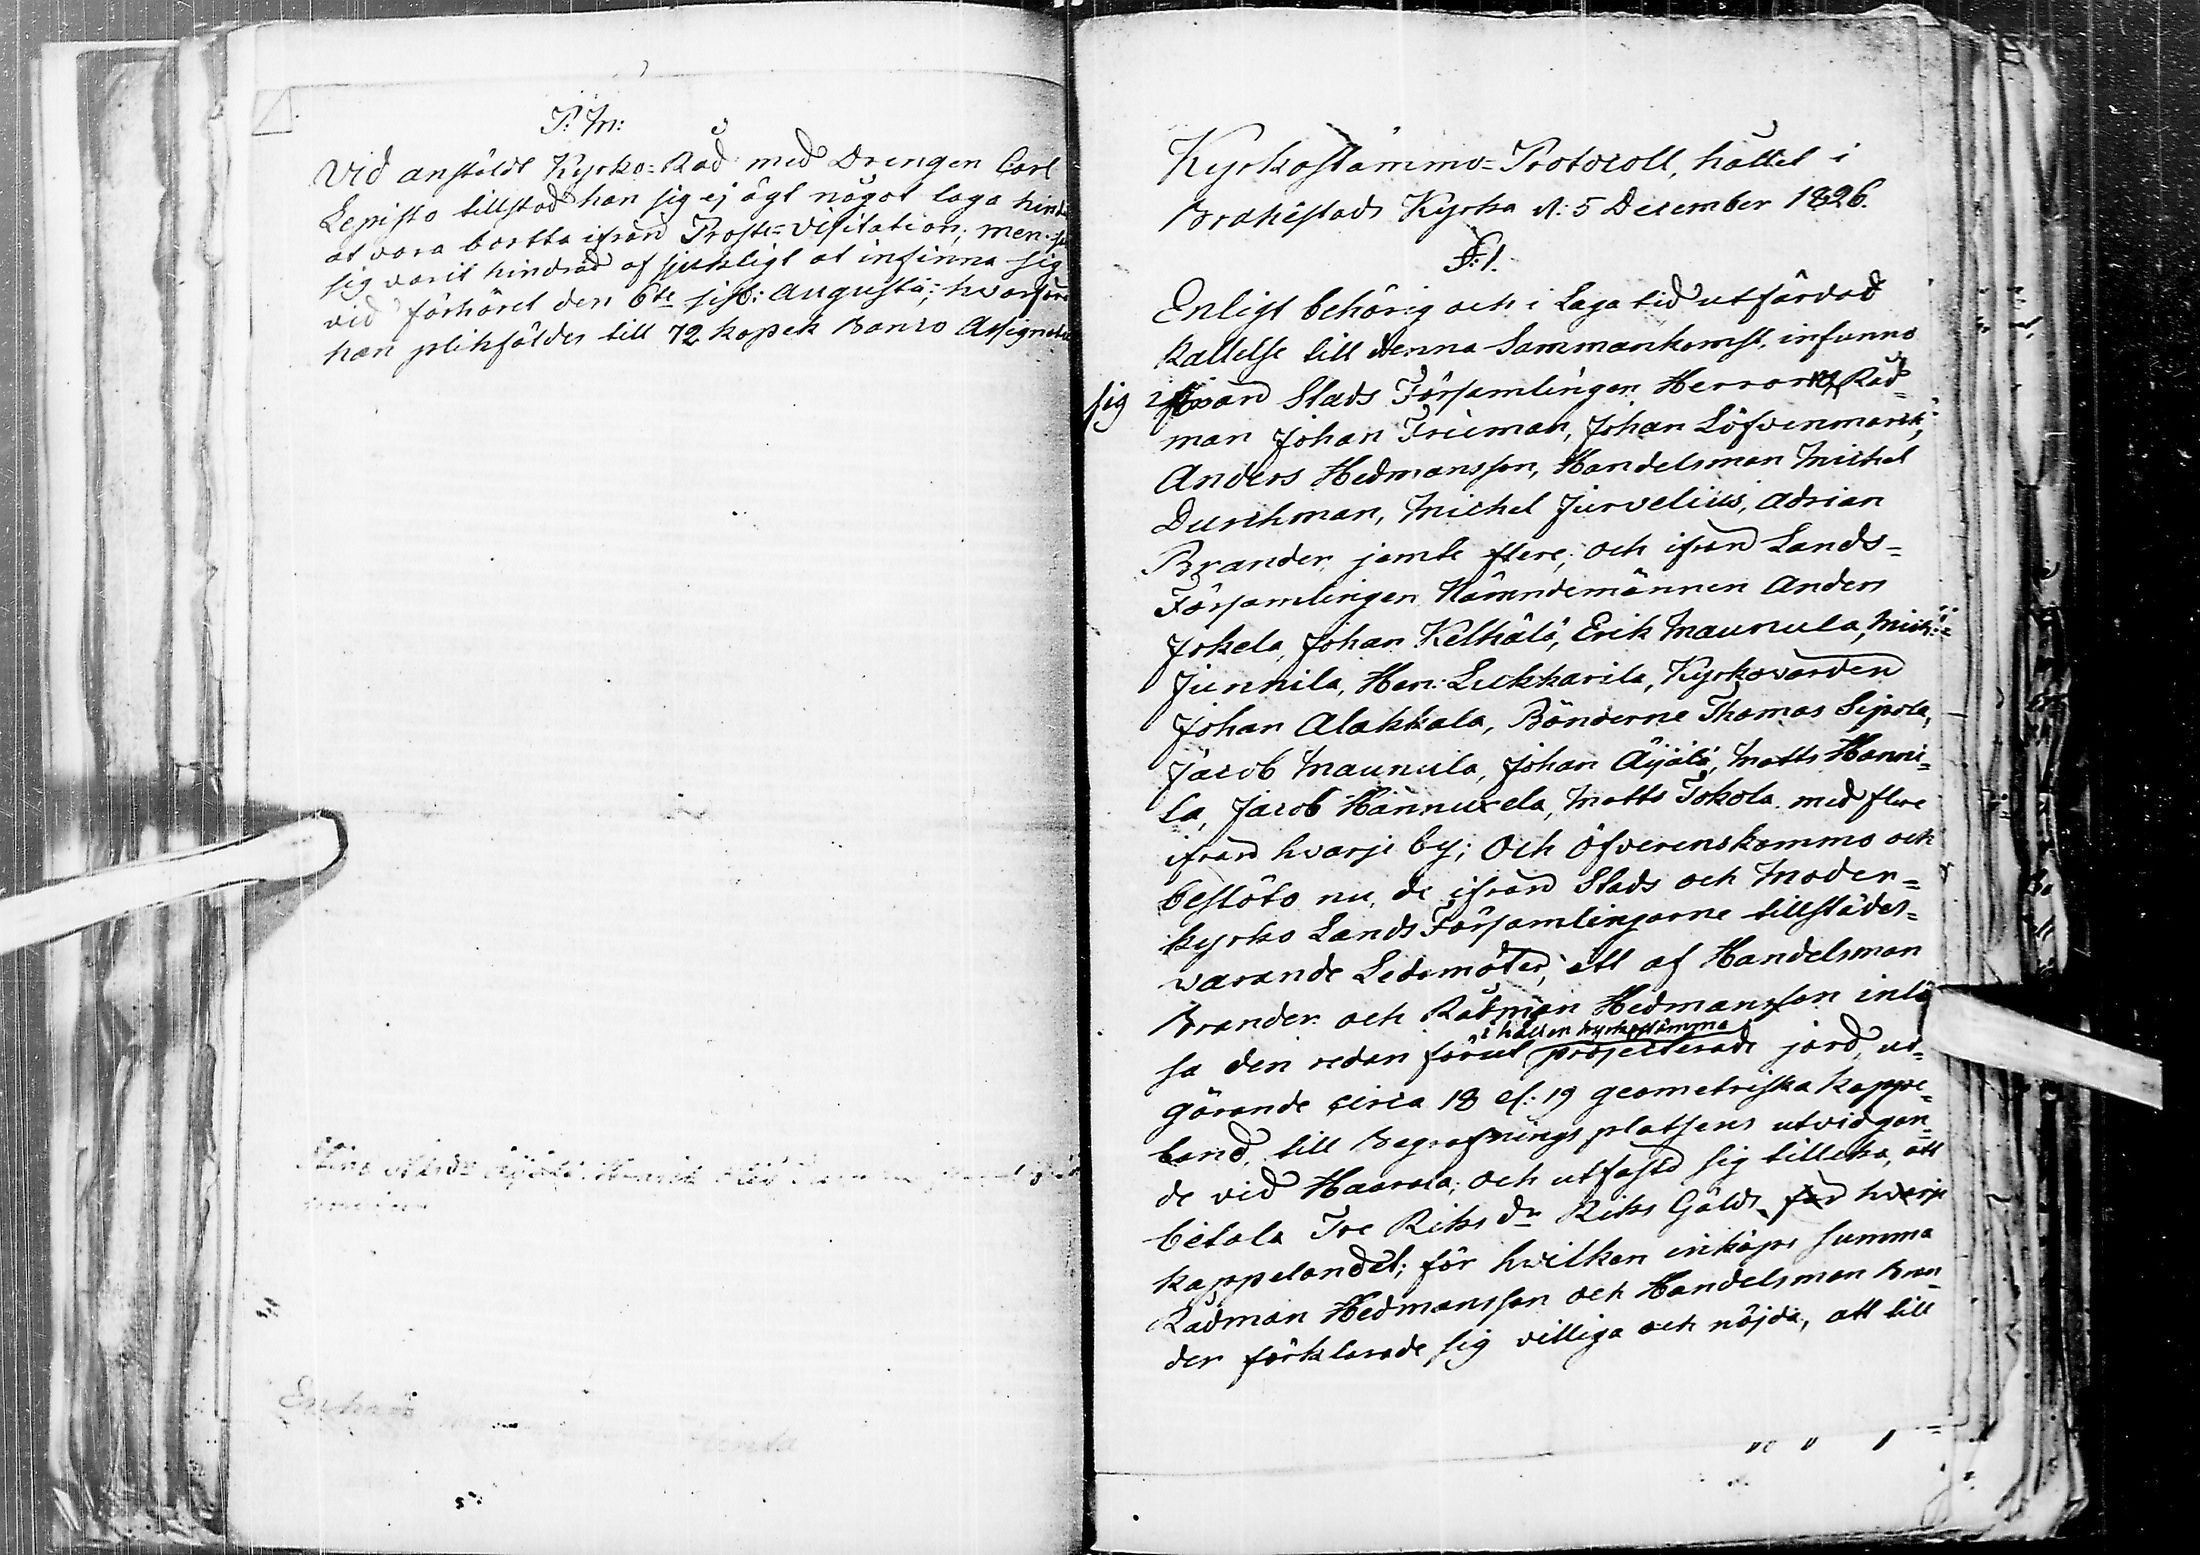 P. M:
Vid anstäldt Kyrko-Råd med Drengen Carl
Lepisto tillstod han sig ej ägt något laga
at vara bortta ifrån Proste-Visitation; men
sig varit hindrad af sjukligt at infinna sig
vid förhöret den 6te sist: Augusti; hvarföre
han plihfäldes till 72 kopek Banco
Kyrkostämmo-Protocoll, hållit i
Brahestads Kyrka d: 5 December 1826.
§:1.
Enligt behörig och i Laga tid utfärdad
kallelse till denna Sammankomst, infunno
sig ifrån Stads Församlingen Herrar Råd-
man Johan Frieman, Johan Löfvenmarck,
Anders Hedmansson, Handelsman Michel
Durchman, Michel Jurvelius, Adrian
Brander jemte flere; och ifrån Lands-
Församlingen Nämndemännen Anders
Jokela, Johan Keltälä, Erik Maunula, Mich:
Junnila, Hen: Lukkarila, Kyrkovärden
Johan Alakkala, Bönderne Thomas Sipola,
Jacob Maunula, Johan Äijälä, Matts Hanni-
la, Jacob Hannuxela, Matts Tokola med flere
ifrån hvarje by; Och öfverenskommo och
beslöto nu, de ifrån Stads och Moder-
kyrko Lands Församlingarne tillstädes-
varande Ledamöter, att af Handelsman
Brander och Rådman Hedmansson inlö-
i hållen kyrkostämma
sa den redan förut projecterade jord, ut-
görande circa 18 el: 19 geometriska kappe-
land, till Begrafnings platsens utvidgan-
de vid Haarala; och utfäste sig tillika, att
betala Tre Riksdr Riks Gälds för hvarje
kappelandet; för hvilken inköps summa
Rådman Hedmansson och Handelsman Bran-
der förklarade sig villiga och nöjda, att till